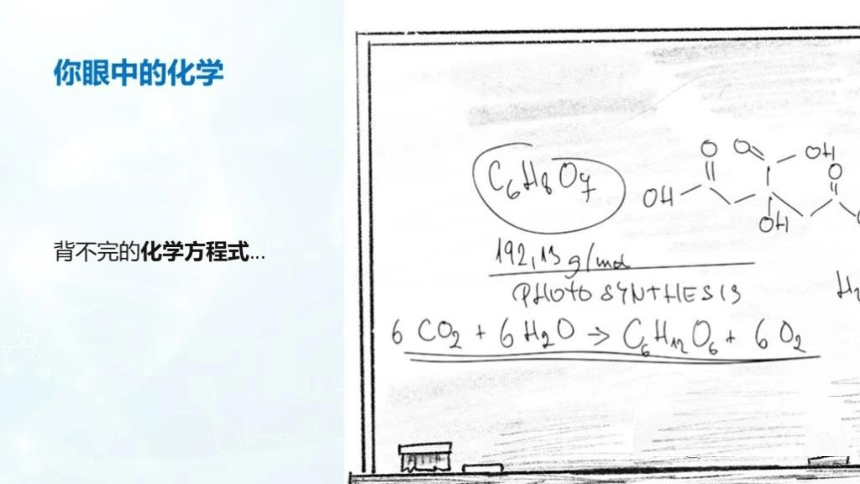 你眼中的化学
背不完的化学方程式...
C₆H₈O₇
O O OH
O
OH
OH
192,13 g/mol
PHOTOSYNTHESIS
H₂
6 CO₂ + 6 H₂O → C₆H₁₂O₆ + 6 O₂